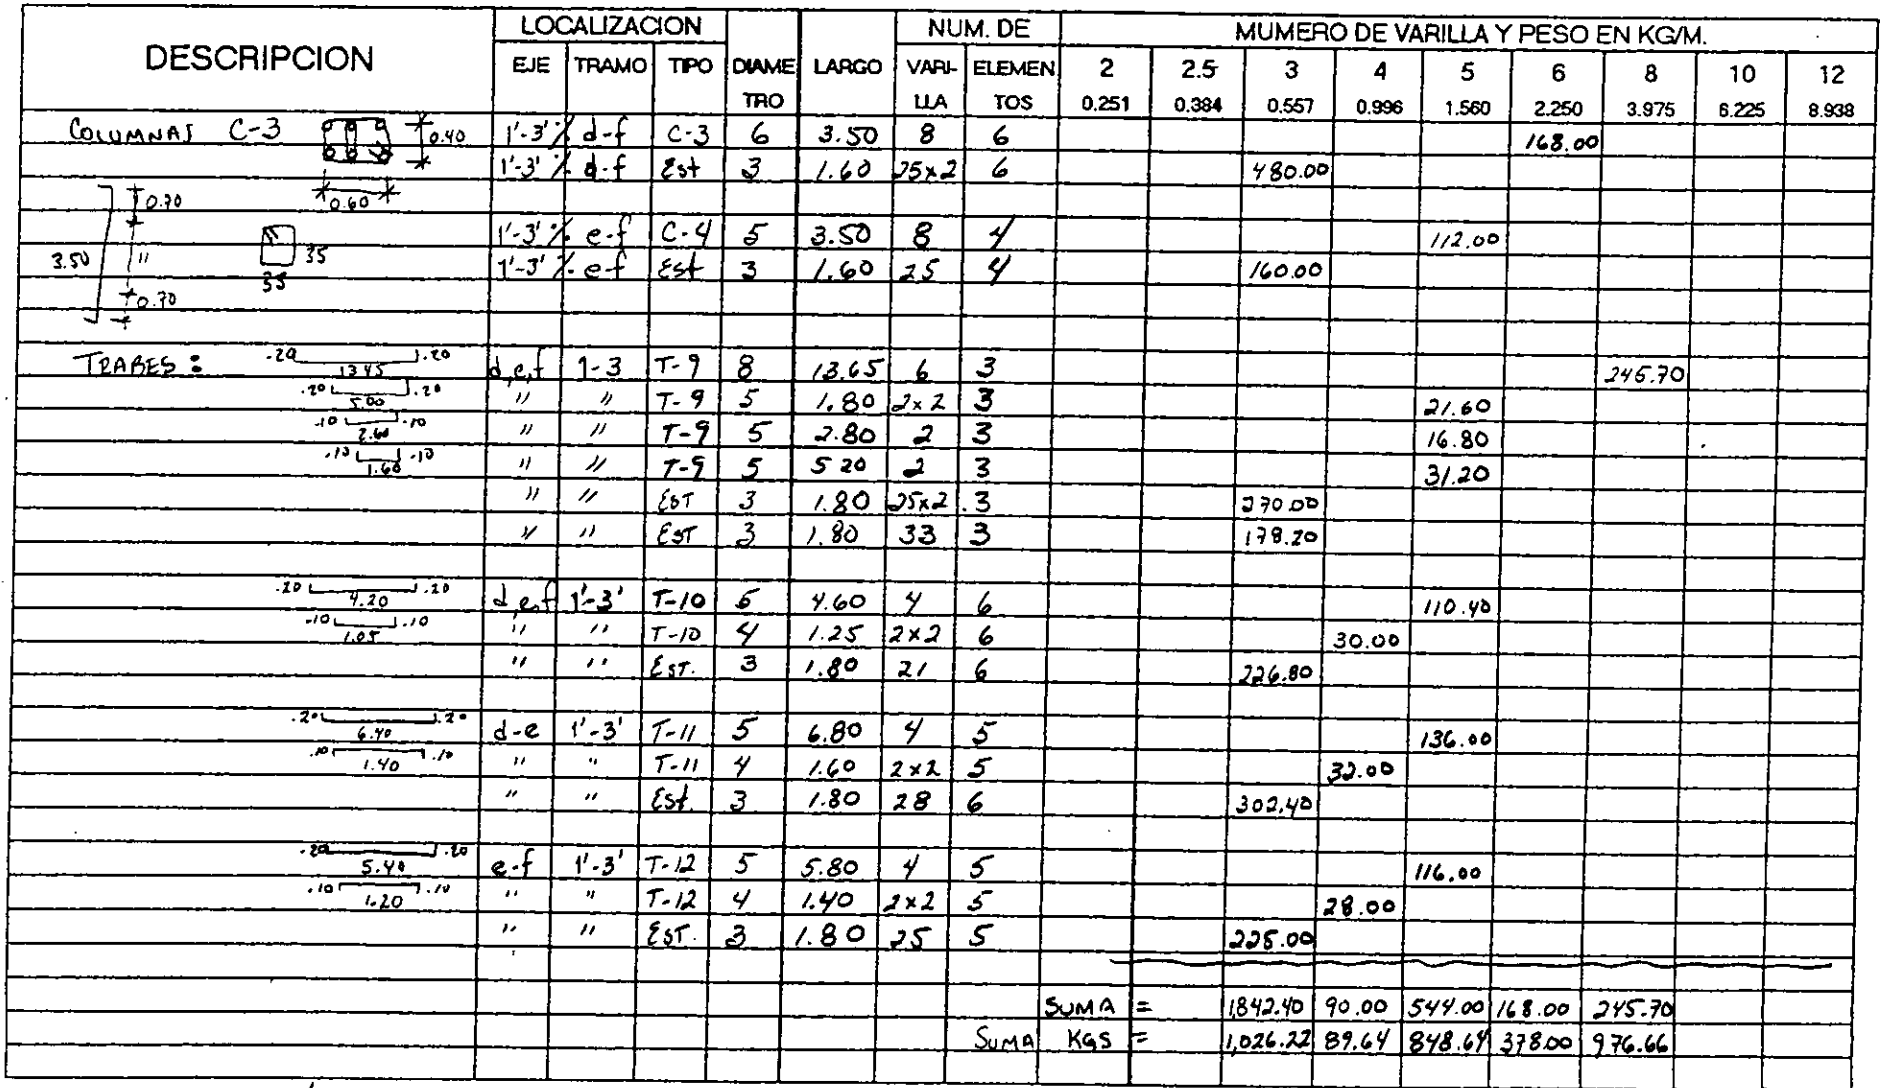 DESCRIPCION LOCALIZACION NUM. DE MUMERO DE VARILLA Y PESO EN KG/M.
EJE TRAMO TIPO DIAME LARGO VARI- ELEMEN 2 2.5 3 4 5 6 8 10 12
TRO LLA TOS 0.251 0.384 0.557 0.996 1.560 2.250 3.975 6.225 8.938
COLUMNAS C-3 0.40 1'-3' % d-f C-3 6 3.50 8 6 168.00
1'-3' % d-f Est 3 1.60 25x2 6 480.00
0.70 0.60
1'-3' % e-f C-4 5 3.50 8 4 112.00
3.50 " 35 1'-3' % e-f Est 3 1.60 25 4 160.00
35
0.70
TRABES: .20 13.45 .20 d,e,f 1-3 T-9 8 13.65 6 3 245.70
.20 5.00 .20 " " T-9 5 1.80 2x2 3 21.60
.10 2.60 .10 " " T-9 5 2.80 2 3 16.80
.10 1.60 .10 " " T-9 5 5 20 2 3 31.20
" " EST 3 1.80 25x2 3 270.00
" " EST 3 1.80 33 3 178.20
.20 4.20 .20 d,e,f 1'-3' T-10 5 4.60 4 6 110.40
.10 1.05 .10 " " T-10 4 1.25 2x2 6 30.00
" " EST. 3 1.80 21 6 226.80
.20 6.40 .20 d-e 1'-3' T-11 5 6.80 4 5 136.00
.10 1.40 .10 " " T-11 4 1.60 2x2 5 32.00
" " Est. 3 1.80 28 6 302.40
.20 5.40 .20 e-f 1'-3' T-12 5 5.80 4 5 116.00
.10 1.20 .10 " " T-12 4 1.40 2x2 5 28.00
" " EST. 3 1.80 25 5 225.00
SUMA = 1,842.40 90.00 544.00 168.00 245.70
SUMA KGS = 1,026.22 89.64 848.64 378.00 976.66